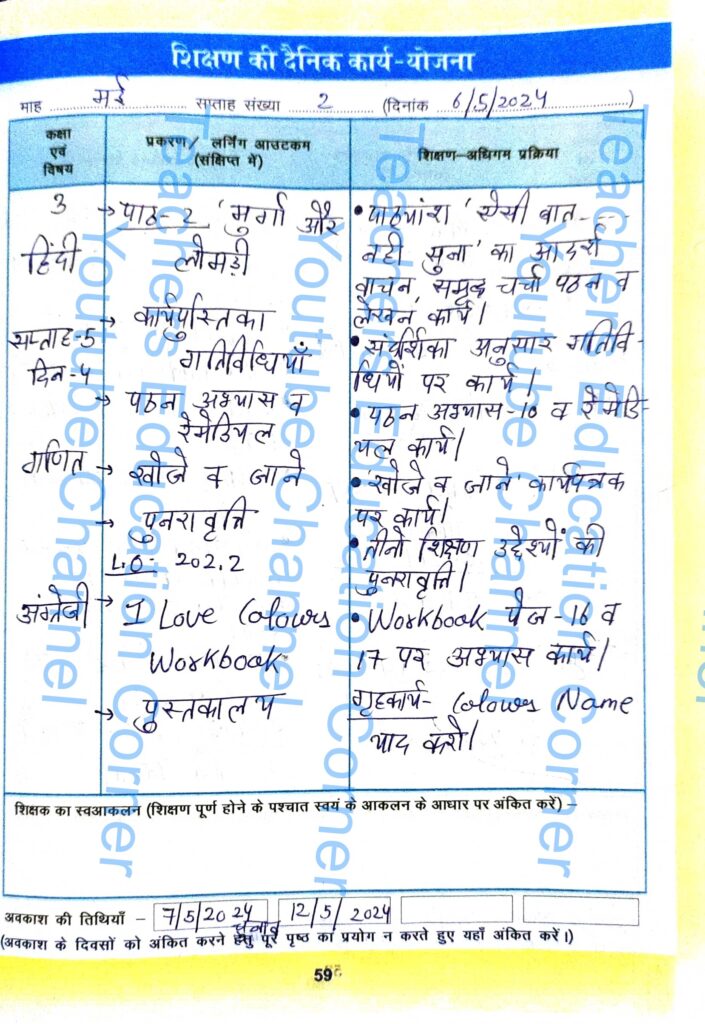 शिक्षण की दैनिक कार्य-योजना
माह मई सप्ताह संख्या 2 (दिनांक 6/5/2024)
कक्षा
एवं
विषय
प्रकरण/ लर्निंग आउटकम
(संक्षिप्त में)
शिक्षण-अधिगम प्रक्रिया
3
हिंदी
सप्ताह-5
दिन-4
गणित
अंग्रेजी
→ पाठ-2 'मुर्गा और
लोमड़ी
→ कार्यपुस्तिका
गतिविधियाँ
→ पठन अभ्यास व
रेमेडियल
→ खोजे व जाने
→ पुनरावृत्ति
L.O- 202.2
→ I Love Colours
Workbook
→ पुस्तकालय
• पाठ्यांश 'ऐसी बात----
नही सुना' का आदर्श
वाचन, समूह चर्चा पठन व
लेखन कार्य।
• संदर्शिका अनुसार गतिवि-
धियों पर कार्य।
• पठन अभ्यास-10 व रेमेडि-
यल कार्य।
• 'खोजे व जाने' कार्यपत्रक
पर कार्य।
• तीनो शिक्षण उद्देश्यों की
पुनरावृत्ति।
• Workbook पेज-16 व
17 पर अभ्यास कार्य।
गृहकार्य- Colours Name
याद करो।
शिक्षक का स्वआकलन (शिक्षण पूर्ण होने के पश्चात स्वयं के आकलन के आधार पर अंकित करें) –
अवकाश की तिथियाँ – 7/5/2024 12/5/2024
चुनाव
(अवकाश के दिवसों को अंकित करने हेतु पूरे पृष्ठ का प्रयोग न करते हुए यहाँ अंकित करें।)
59
Teachers Education Corner
Youtube Channel
Teachers Education Corner
Youtube Channel
Teachers Education Corner
Youtube Channel